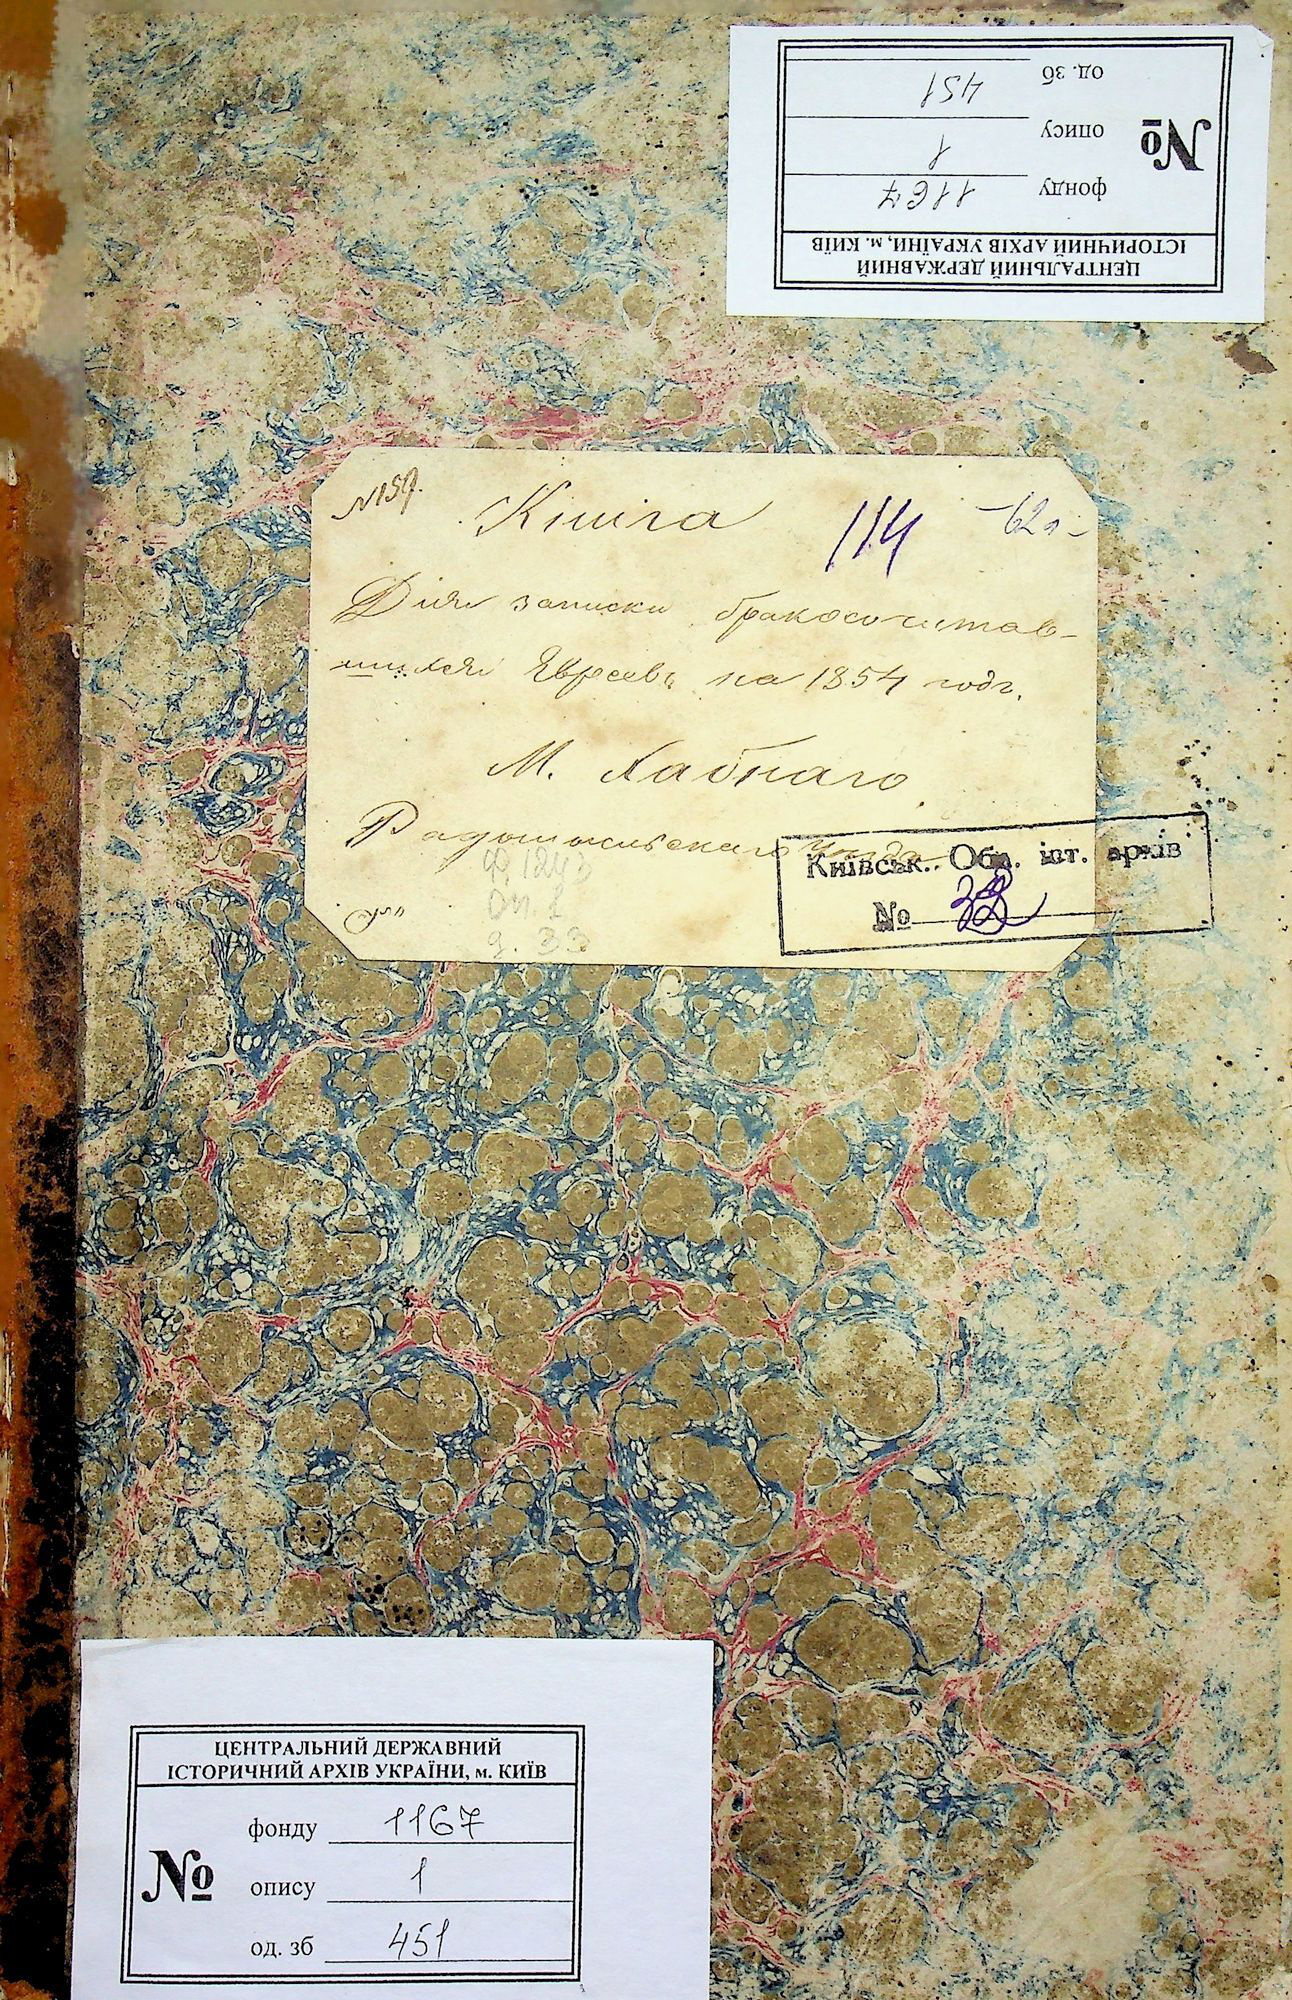 ЦЕНТРАЛЬНИЙ ДЕРЖАВНИЙ
ІСТОРИЧНИЙ АРХІВ УКРАЇНИ, м. КИЇВ
№
фонду 1167
опису 1
од. зб 451
№159.
Книга
114
62 л
Для записки бракосочетав-
шихся Евреевъ на 1854 годъ.
М. Хабнаго
Радомысльскаго уезда
Ф 1243
Оп. 1
д. 33
Київськ. Обл. іст. архів
№
ЦЕНТРАЛЬНИЙ ДЕРЖАВНИЙ
ІСТОРИЧНИЙ АРХІВ УКРАЇНИ, м. КИЇВ
№
фонду 1167
опису 1
од. зб 451